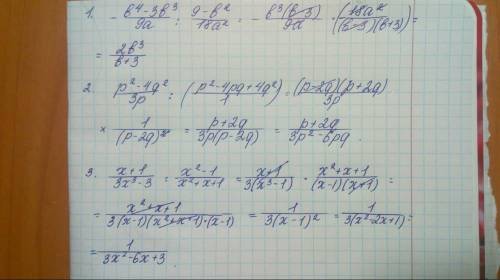 1. - (в⁴-3в³)/(9a) : (9-в²)/(18a²) = - (в³(в-3))/(9a) · (18a²)/((в-3)(в+3)) =
= (2в³)/(в+3)
2. (p²-4q²)/(3p) : ((p²-4pq+4q²)/1) = ((p-2q)(p+2q))/(3p)
× 1/(p-2q)² = (p+2q)/(3p(p-2q)) = (p+2q)/(3p²-6pq).
3. (x+1)/(3x³-3) : (x²-1)/(x²+x+1) = (x+1)/(3(x³-1)) · (x²+x+1)/((x-1)(x+1)) =
= (x²+x+1)/(3(x-1)(x²+x+1)·(x-1)) = 1/(3(x-1)²) = 1/(3(x²-2x+1)) =
= 1/(3x²-6x+3).